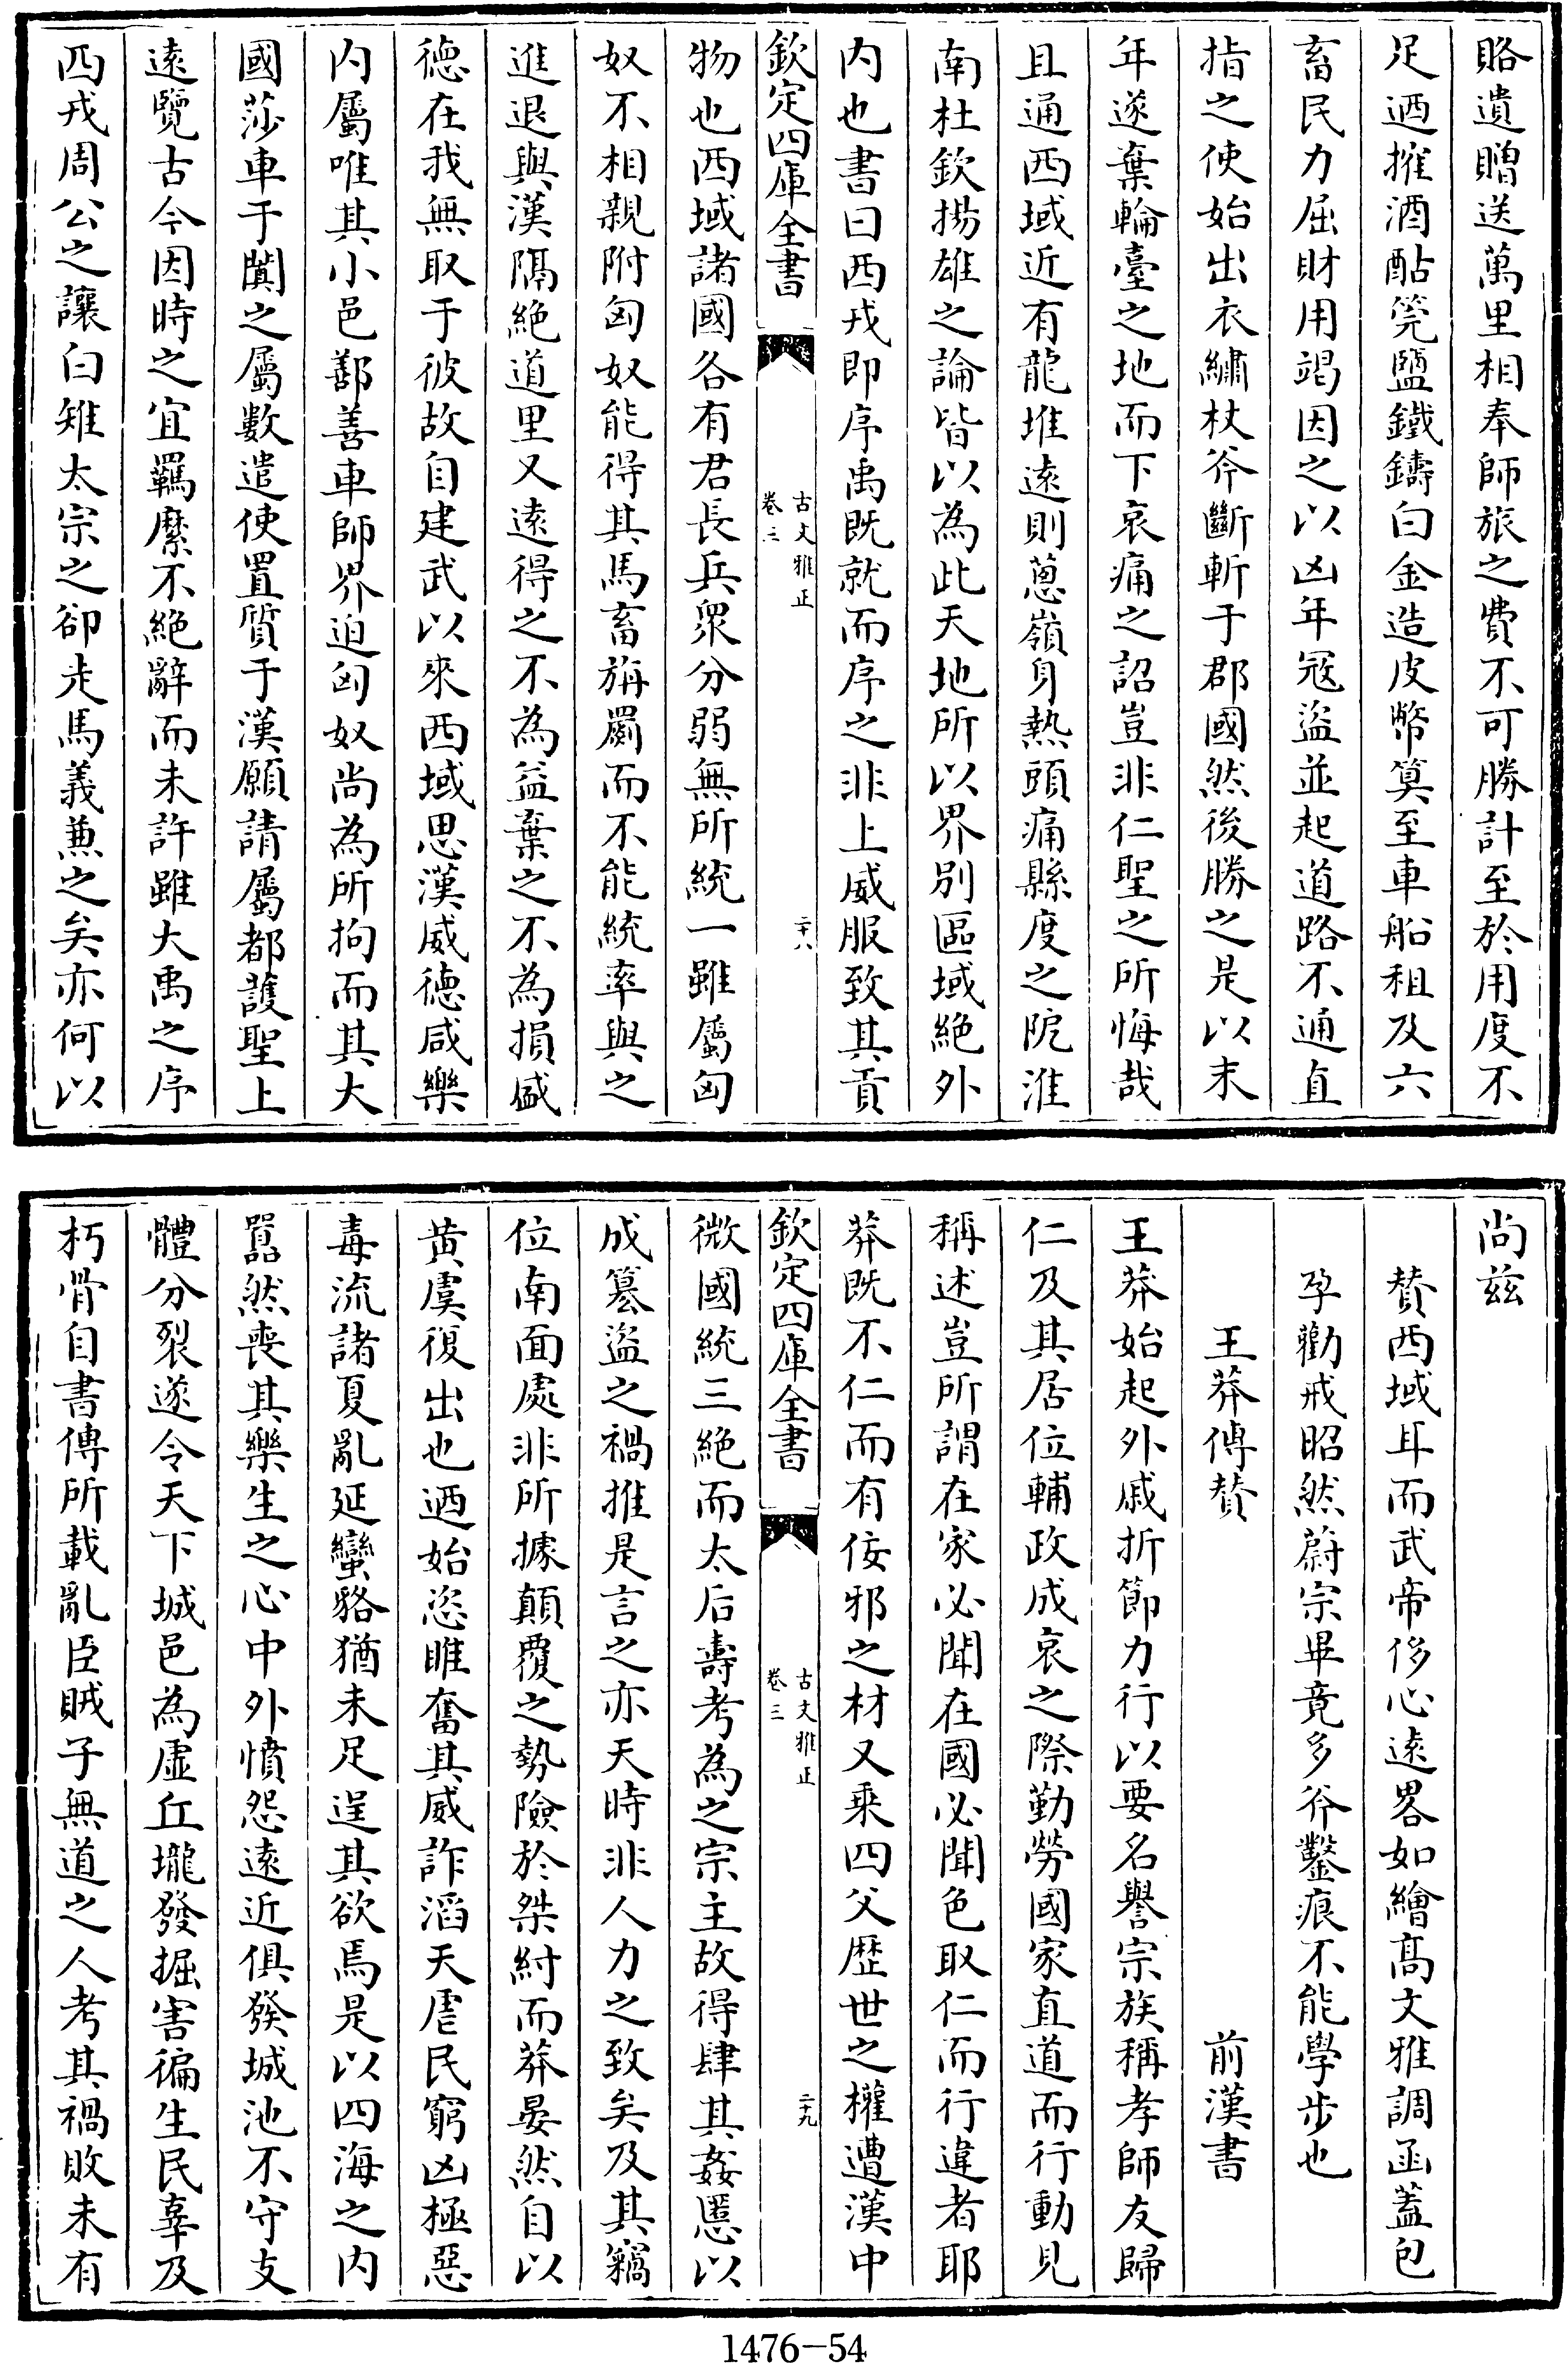 賂遺贈送萬里相奉師旅之費不可勝計至於用度不
足迺搉酒酤筦鹽鐵鑄白金造皮幣筭至車船租及六
畜民力屈財用竭因之以凶年冦盜並起道路不通直
指之使始出衣繡杖斧斷斬于郡國然後勝之是以末
年遂棄輪臺之地而下哀痛之詔豈非仁聖之所悔哉
且通西域近有龍堆遠則蔥嶺身熱頭痛縣度之阨淮
南杜欽揚雄之論皆以為此天地所以界別區域絶外
内也書曰西戎即序禹既就而序之非上威服致其貢
欽定四庫全書
古文雅正
卷三
二十八
物也西域諸國各有君長兵衆分弱無所統一雖屬匈
奴不相親附匈奴能得其馬畜旃罽而不能統率與之
進退與漢隔絶道里又遠得之不為益棄之不為損盛
徳在我無取于彼故自建武以來西域思漢威徳咸樂
内屬唯其小邑鄯善車師界迫匈奴尚為所拘而其大
國莎車于闐之屬數遣使置質于漢願請屬都護聖上
遠覽古今因時之宜羈縻不絶辭而未許雖大禹之序
西戎周公之讓白雉太宗之卻走馬義兼之矣亦何以
尚兹
賛西域耳而武帝侈心遠畧如繪髙文雅調函蓋包
孕勸戒昭然蔚宗畢竟多斧鑿痕不能學步也
王莽傳賛
前漢書
王莽始起外戚折節力行以要名譽宗族稱孝師友歸
仁及其居位輔政成哀之際勤勞國家直道而行動見
稱述豈所謂在家必聞在國必聞色取仁而行違者耶
莽既不仁而有佞邪之材又乗四父歴世之權遭漢中
欽定四庫全書
古文雅正
卷三
二十九
微國統三絶而太后壽考為之宗主故得肆其姦慝以
成簒盜之禍推是言之亦天時非人力之致矣及其竊
位南面處非所據顛覆之勢險於桀紂而莽晏然自以
黄虞復出也迺始恣睢奮其威詐滔天虐民窮凶極惡
毒流諸夏亂延蠻貉猶未足逞其欲焉是以四海之内
囂然喪其樂生之心中外憤怨遠近俱發城池不守支
體分裂遂令天下城邑為虛丘壠發掘害徧生民辜及
朽骨自書傳所載亂臣賊子無道之人考其禍敗未有
1476-54